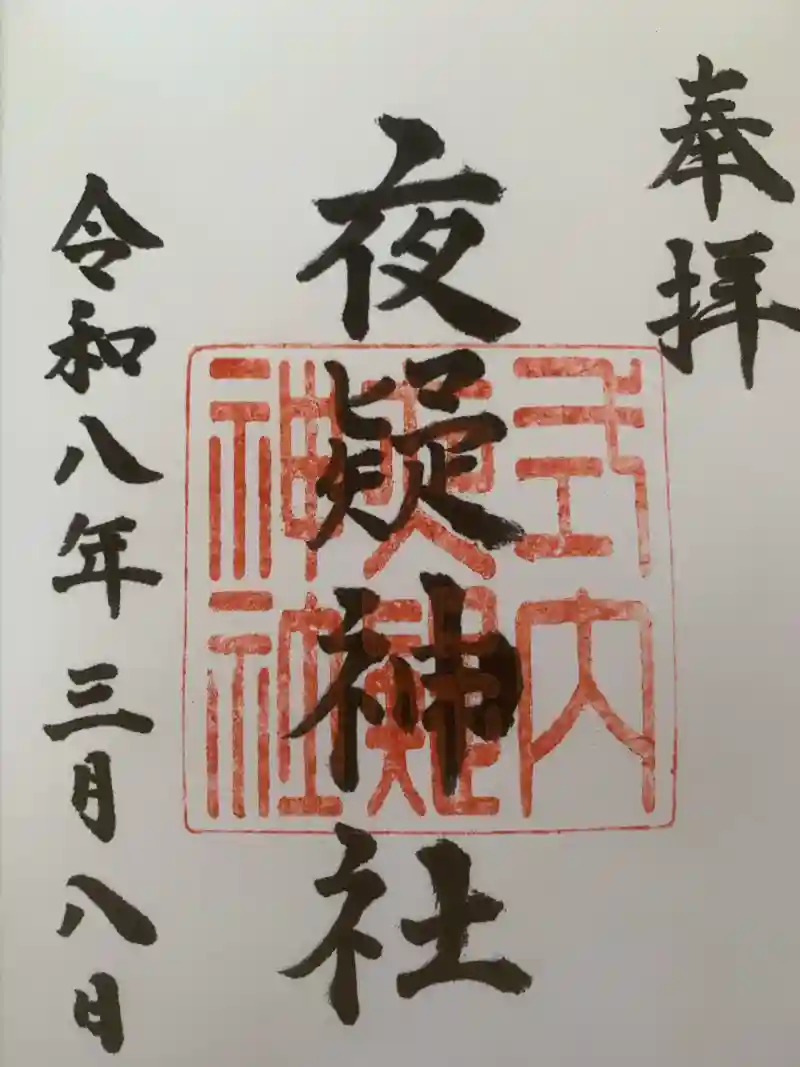 奉拝
夜疑神社
令和八年三月八日
式内
夜疑
神社